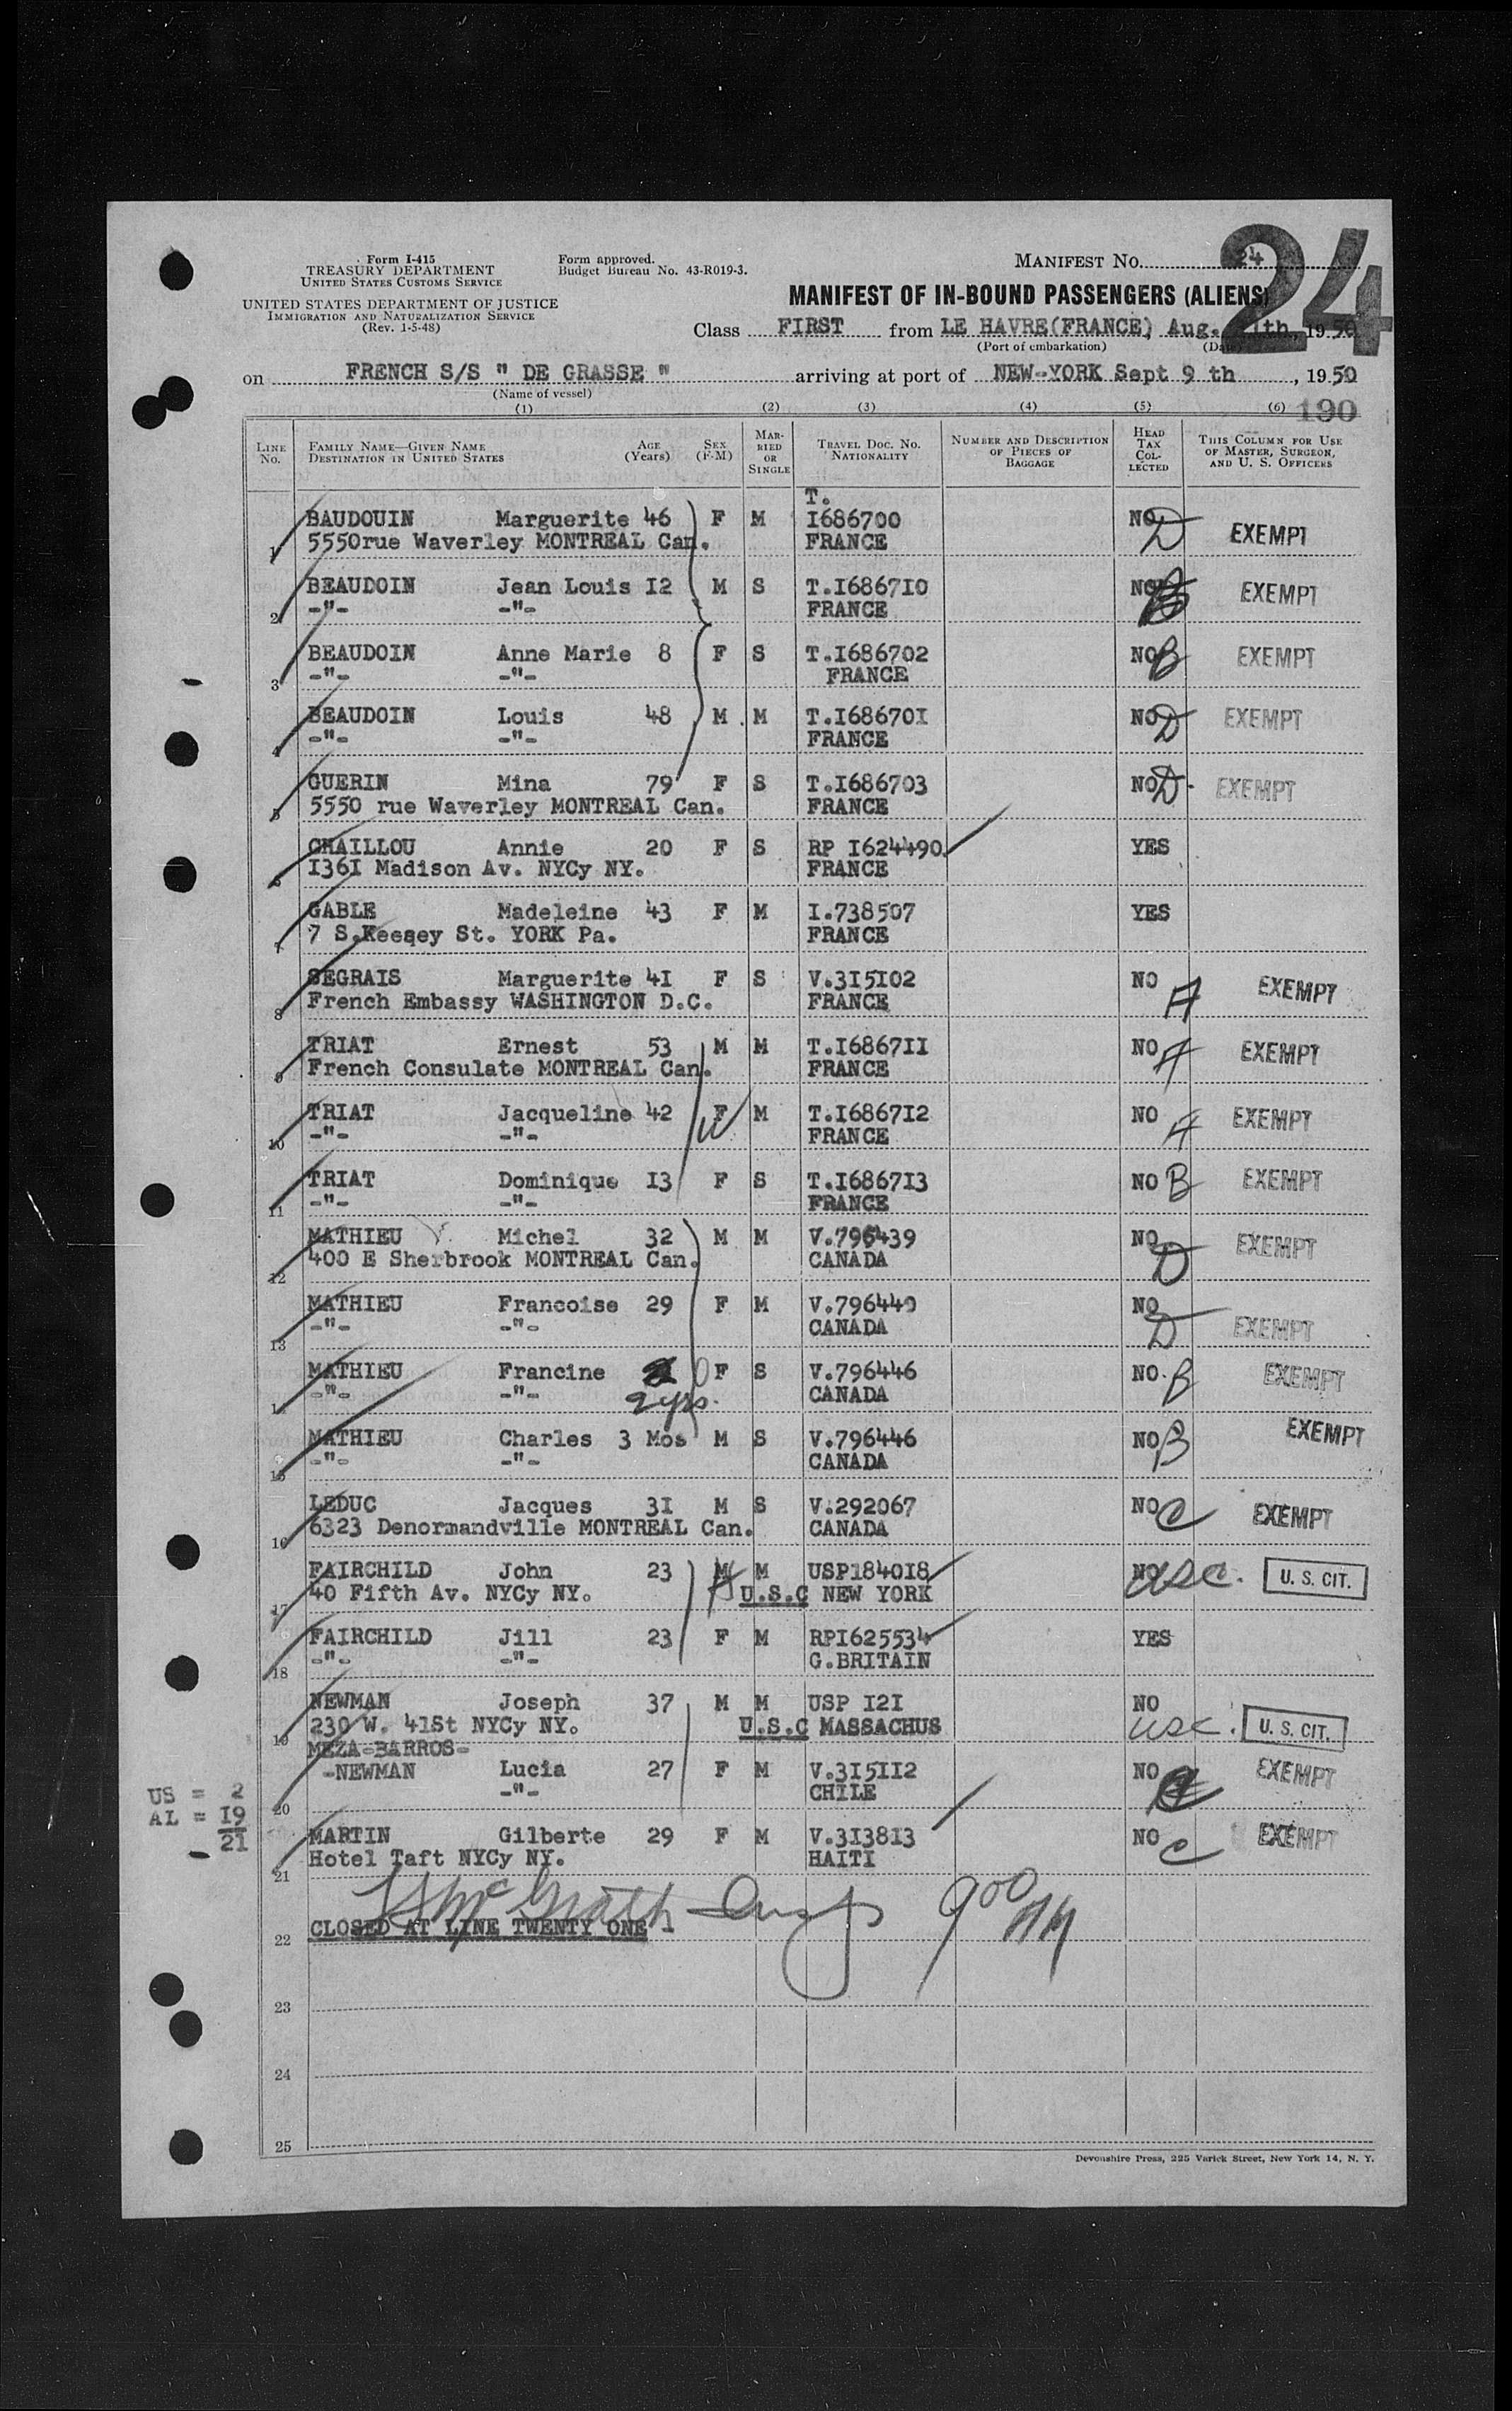 Form I-415
TREASURY DEPARTMENT
UNITED STATES CUSTOMS SERVICE
UNITED STATES DEPARTMENT OF JUSTICE
IMMIGRATION AND NATURALIZATION SERVICE
(Rev. 1-5-48)
Form approved.
Budget Bureau No. 43-R019-3.
MANIFEST NO. 24
24
MANIFEST OF IN-BOUND PASSENGERS (ALIENS)
Class FIRST from LE HAVRE(FRANCE) Aug. th, 1950
(Port of embarkation) (Date)
on FRENCH S/S " DE GRASSE " arriving at port of NEW-YORK Sept 9 th, 1950
(Name of vessel)
(1) (2) (3) (4) (5) (6) 190
LINE No. FAMILY NAME—GIVEN NAME DESTINATION IN UNITED STATES AGE (Years) SEX (F-M) MARRIED OR SINGLE TRAVEL DOC. NO. NATIONALITY NUMBER AND DESCRIPTION OF PIECES OF BAGGAGE HEAD TAX COLLECTED THIS COLUMN FOR USE OF MASTER, SURGEON, AND U. S. OFFICERS
T.
BAUDOUIN Marguerite 46 F M I686700 NO D EXEMPT
1 5550rue Waverley MONTREAL Can. FRANCE
BEAUDOIN Jean Louis I2 M S T.I6867I0 NO B EXEMPT
2 -"- -"- FRANCE
BEAUDOIN Anne Marie 8 F S T.I686702 NO B EXEMPT
3 -"- -"- FRANCE
BEAUDOIN Louis 48 M M T.I68670I NO D EXEMPT
4 -"- -"- FRANCE
GUERIN Mina 79 F S T.I686703 NO D EXEMPT
5 5550 rue Waverley MONTREAL Can. FRANCE
CHAILLOU Annie 20 F S RP I624490 YES
6 I36I Madison Av. NYCy NY. FRANCE
GABLE Madeleine 43 F M I.738507 YES
7 7 S.Keesey St. YORK Pa. FRANCE
SEGRAIS Marguerite 4I F S V.3I5I02 NO A EXEMPT
8 French Embassy WASHINGTON D.C. FRANCE
TRIAT Ernest 53 M M T.I6867II NO A EXEMPT
9 French Consulate MONTREAL Can. FRANCE
TRIAT Jacqueline 42 F W M T.I6867I2 NO A EXEMPT
10 -"- -"- FRANCE
TRIAT Dominique I3 F S T.I6867I3 NO B EXEMPT
11 -"- -"- FRANCE
MATHIEU Michel 32 M M V.796439 NO D EXEMPT
12 400 E Sherbrook MONTREAL Can. CANADA
MATHIEU Francoise 29 F M V.796440 NO D EXEMPT
13 -"- -"- CANADA
MATHIEU Francine F S V.796446 NO. B EXEMPT
14 -"- -"- 2 yrs. CANADA
MATHIEU Charles 3 Mos M S V.796446 NO B EXEMPT
15 -"- -"- CANADA
LEDUC Jacques 3I M S V.292067 NO C EXEMPT
16 6323 Denormandville MONTREAL Can. CANADA
FAIRCHILD John 23 M M USP184018 NO usc. U. S. CIT.
17 40 Fifth Av. NYCy NY. U.S.C NEW YORK
FAIRCHILD Jill 23 F M RPI625534 YES
18 -"- -"- G.BRITAIN
NEWMAN Joseph 37 M M USP I2I NO
19 230 W. 41St NYCy NY. U.S.C MASSACHUS usc. U. S. CIT.
MEZA-BARROS-
-NEWMAN Lucia 27 F M V.3I5II2 NO EXEMPT
20 -"- CHILE
US = 2
AL = 19
21
MARTIN Gilberte 29 F M V.3I38I3 NO C EXEMPT
21 Hotel Taft NYCy NY. HAITI
McGrath Insp 9 00 AM
22 CLOSED AT LINE TWENTY ONE -
23
24
25
Devonshire Press, 225 Varick Street, New York 14, N. Y.